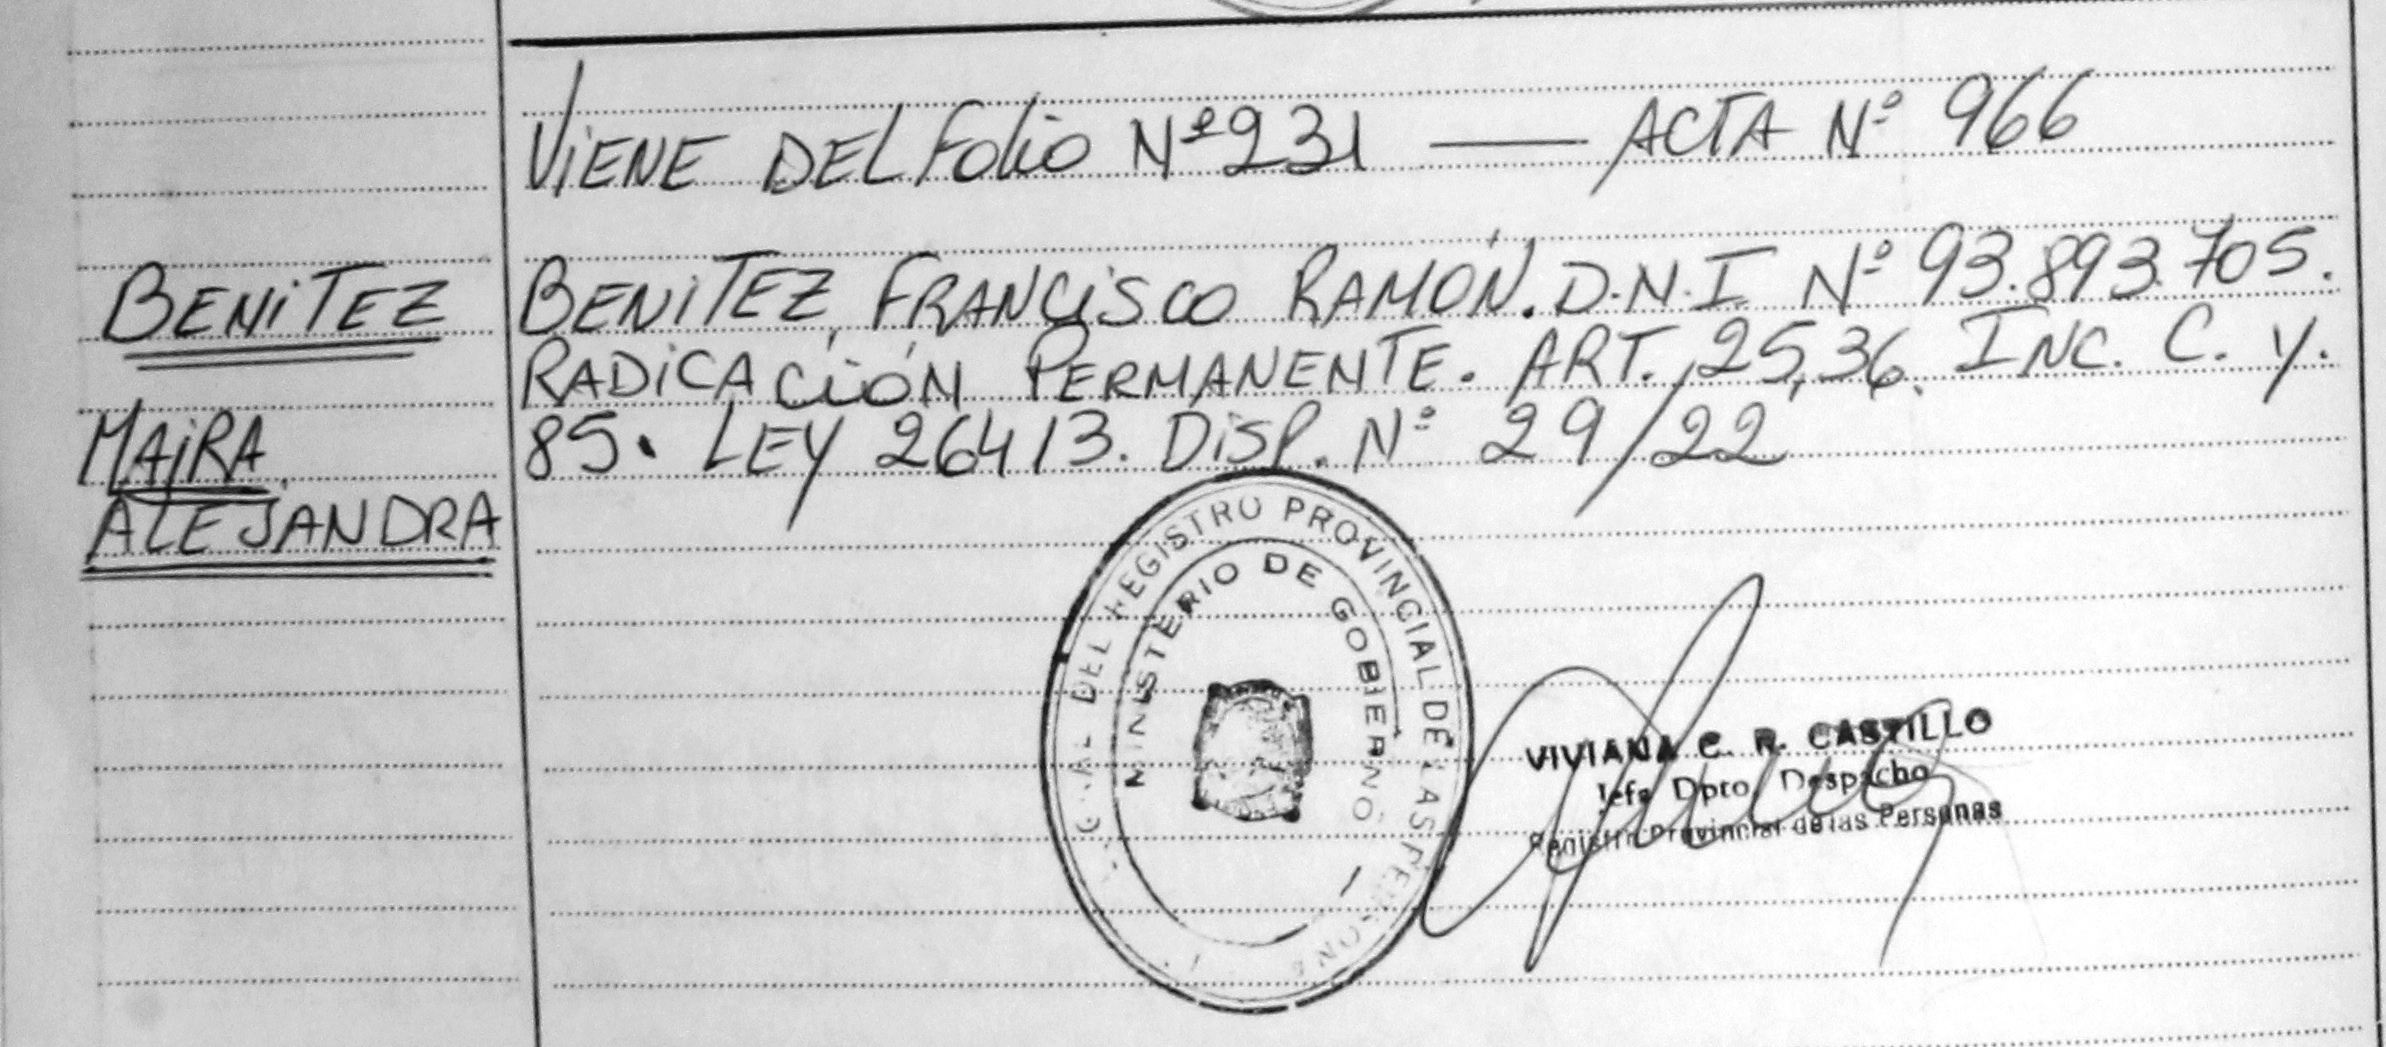 VIENE DEL FOLIO Nº 231 — ACTA Nº 966
BENITEZ
MAIRA
ALEJANDRA
BENITEZ, FRANCISCO RAMÓN. D.N.I Nº 93.893.705.
RADICACIÓN PERMANENTE. ART. 25,36, INC. C. y.
85. LEY 26413. DISP. Nº 29/22
DEL REGISTRO PROVINCIAL DE LAS PERSONAS
MINISTERIO DE GOBIERNO
VIVIANA C. R. CASTILLO
Jefa Dpto. Despacho
Registro Provincial de las Personas